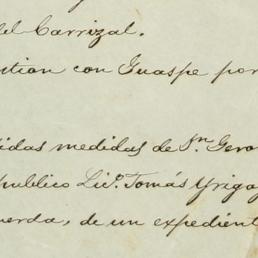 del Carrizal.
stion con Guaspe por
didas medidas de Sn. Gero
publico Lido. Tomás Yrigo
uerda, de un expedient